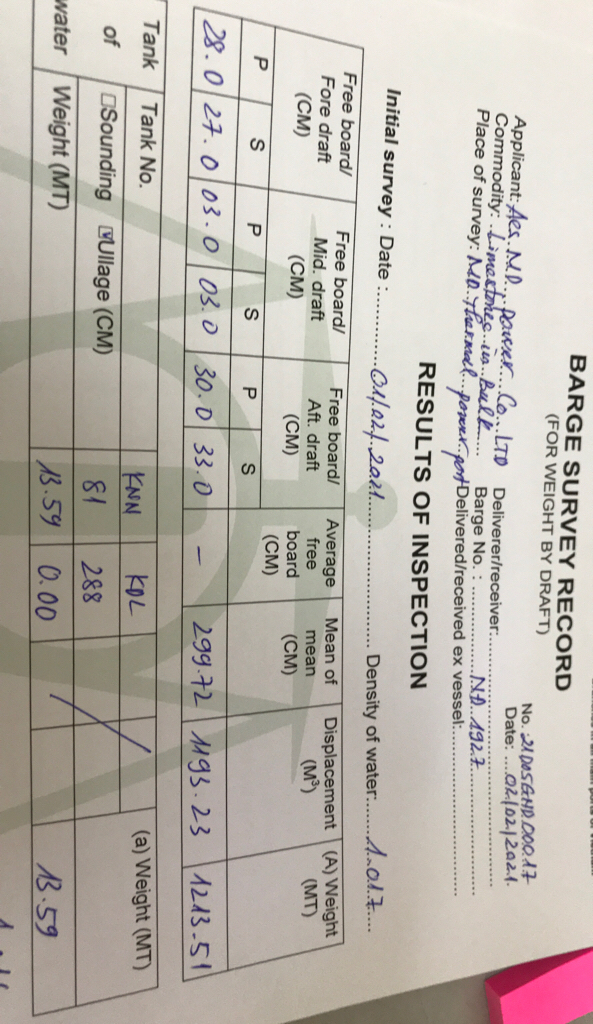 BARGE SURVEY RECORD
(FOR WEIGHT BY DRAFT)
No. 21D05GND00017
Date: ...02/02/2021.
Applicant: Aes. M.D.. power.. Co.. LTD Deliverer/receiver:
Commodity: Limestones in bulk Barge No. : ND.1927
Place of survey: M.D. thermal power port Delivered/received ex vessel:
RESULTS OF INSPECTION
Initial survey : Date : 01/02/2021 Density of water: 1.017
Free board/ Fore draft (CM) Free board/ Mid. draft (CM) Free board/ Aft. draft (CM) Average free board (CM) Mean of mean (CM) Displacement (M³) (A) Weight (MT)
P S P S P S
28.0 27.0 03.0 03.0 30.0 33.0 - 299.72 1193.23 1213.51
Tank of water Tank No. KNN KDL (a) Weight (MT)
☐Sounding ☑Ullage (CM) 81 288
Weight (MT) 13.59 0.00 13.59